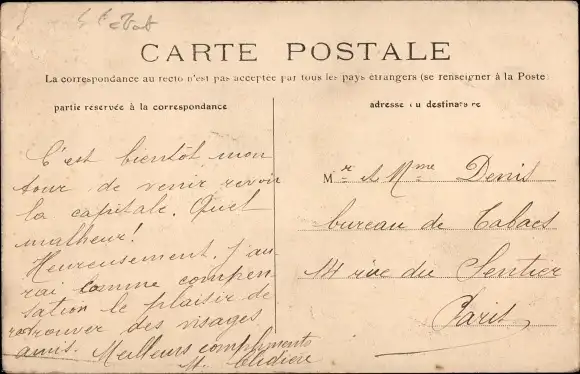 CARTE POSTALE
La correspondance au recto n'est pas acceptée par tous les pays étrangers (se renseigner à la Poste
partie réservée à la correspondance
adresse du destinataire
C'est bientôt mon
tour de venir revoir
la capitale. Quel
malheur!
Heureusement. J'au
rai comme compen
sation le plaisir de
retrouver des visages
amis. Meilleurs compliments
Mr et Mme Denis
bureau de Tabacs
14 rue du Sentier
Paris